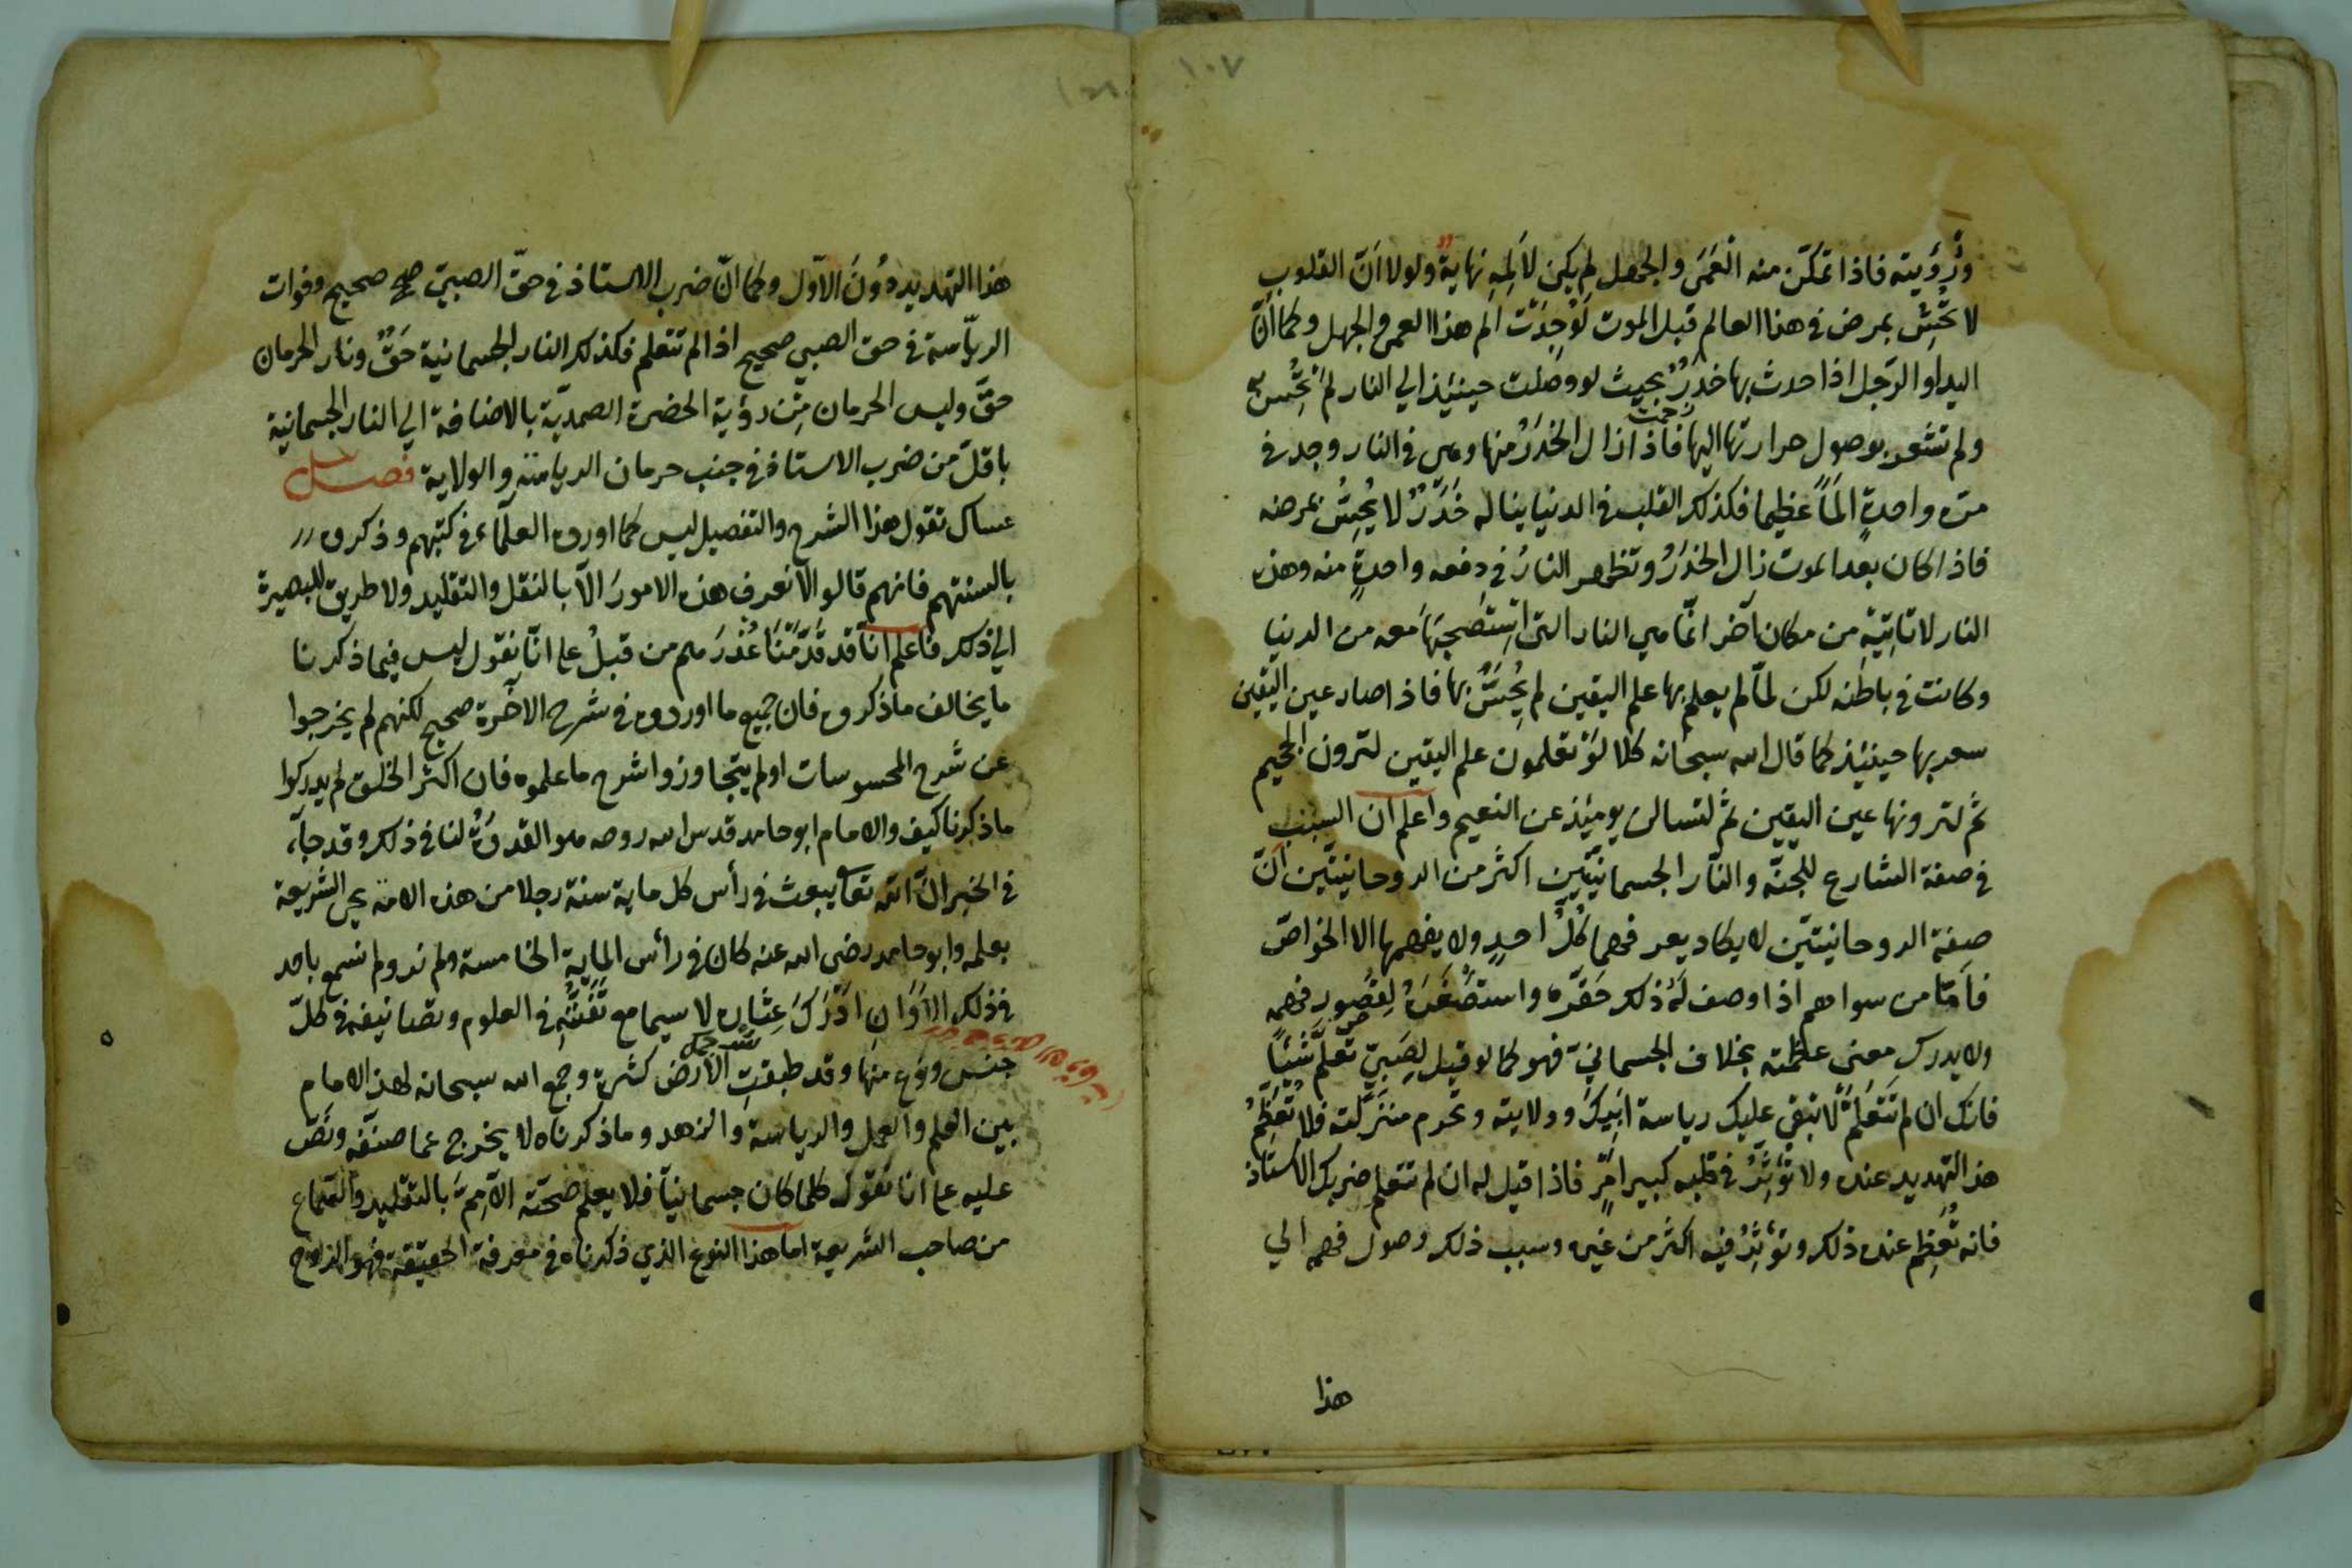 ١٠٧
ورؤيته فاذا تمكّن منه العَمَى والجهل لم يكن لأَلَمِهِ نهايةٌ ولولا انّ القلوب
لا تُحِسّ بمرض في هذا العالم قبل الموت لَوُجِدَتْ الم هذا العمى والجهل وكما أنّ
اليد او الرّجل اذا حدث بها خَدَرٌ بحيث لو وصلت حينئذ الي النار لم تُحِسّ
ولم تشعر بوصول حرارتها اليها فاذا زال الخَدَرُ منها وهى في النار وجد في
مرة واحدةٍ الَمًا عظيما فكذلك القلب في الدنيا يناله خَدَرٌ لا يُحِسُّ بمرضه
فاذا كان بعد الموت زال الخَدَرُ وتظهر النارُ في دفعه واحدةٍ منه وهذه
النار لا تاتيه من مكان آخر انّما هي النار التى استصحبَهَا معه من الدنيا
وكانت في باطنه لكن لمّا لم يعلم بها علم اليقين لم يُحِسّ بها فاذا صار عين اليقين
شعر بها حينئذ كما قال الله سبحانه كلا لَوْ تعلمون علم اليقين لترون الجحيم
ثم لترونها عين اليقين ثم لتسالن يومئذ عن النعيم واعلم ان السبب
في صفة الشارع للجنّة والنّار الجسمانيّتين اكثر من الروحانيتّين انّ
صفة الروحانيتّين لا يكاد يعرفهما كُلُّ احدٍ ولا يفهمها الا الخواصّ
فأمّا من سواهم اذا وصف لَهُ ذلك حَقّره واستصغَرَهُ لِقصُور فهمه
ولا يدرك معنى عظمته بخلاف الجسمانيّة فهو كما لو قيل لصَبِيّ تعلّم شَيْئًا
فانك ان لم تتعَلَّمْ لا تبقي عليك رياسة ابيك وولايته وتحرم منزلته فلا تُعَظِّمُ
هذا التهديد عنده ولا تُؤَثِّرُ في قلبه كبير امرٍ فاذا قيل له ان لم تتعلم ضربك الاستاذ
فانه تُعَظِّم عنده ذلك وتؤَثِّرُ فيه اكثر من غيره وسبب ذلك وصول فهمه الي
هذا
هذا التهديد دُونَ الاوّل وكما انّ ضرب الاستاذ في حقّ الصبيّ صحيح وفوات
الريّاسة في حق الصبي صحيح اذا لم تتعلم فكذلك النار الجسمانية حَقٌّ ونار الحرمان
حقّ وليس الحرمان مِن رؤية الحضرة الصمديّة بالاضافة الي النار الجسمانية
باقلّ من ضرب الاستاذ في جنب حرمان الرياسة والولاية فصل
عساك تقول هذا الشرح والتفصيل ليس كما اورده العلمآء في كتبهم وذكروه
بالسنتهم فانهم قالوا لا نعرف هذه الامورَ الّا بالنقل والتقليد ولا طريق للبصيرة
الي ذلك فاعلم انّا قد قَدَّمْنَا عُذْرَهم من قبلُ على انّا نقول ليس فيما ذكرنا
ما يخالف ما ذكروه فان جميع ما اوردوه في شرح الآخرة صحيح لكنهم لم يخرجوا
عن شرح المحسوسات او لم يتجاوزوا شرح ما علموه فان اكثر الخلق لم يدركوا
ما ذكرنا كيف والامام ابو حامد قدس الله روحه هو القدوَةُ لنا في ذلك وقد جآء
في الخبر انّ الله تعا يبعث في رأس كل ماية سنة رجلا من هذه الامة يحيى الشريعة
بعلمه وابو حامد رضي الله عنه كان في رأس المايةِ الخامسة ولم نر ولم نسمع باحد
في ذلك الاوَانِ ادْرَكَ عِثَاره لا سيما مع تَفَنُّنِهِ في العلوم وتصانيفه في كلّ
جنس ونوع منها وقد طبقتِ الأرض كثرةً وجمع الله سبحانه لهذا الامام
بين العلم والعمل والرياسة والزهد وما ذكرناه لا يخرج عما صنّفه ونصّ
عليه على انا نقول كلما كان جسمانيّا فلا يعلم صحّته الاّ مِمّ بالتقليد والسّماع
من صاحب الشريعة اما هذا النوع الذي ذكرناه في معرفة الحقيقة فهو